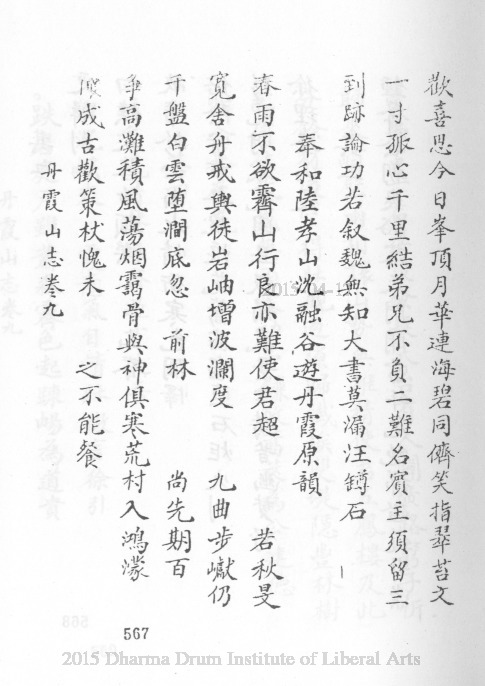 歡喜思今日峯頂月華連海碧同儕笑指翠苔文
一寸孤心千里結弟兄不負二難名賓主須留三
到跡論功若叙魏無知大書莫漏汪罇石
奉和陸孝山沈融谷遊丹霞原韻
春雨不欲霽山行良亦難使君超 若秋旻
寬舍舟戒輿徒岩岫增波瀾度 九曲步巘仍
千盤白雲墮澗底忽 前林 尚先期百
爭高灘積風蕩烟靄骨與神俱寒荒村入鴻濛
成古歡策杖愧未 之不能餐
丹霞山志卷九
567
2015 Dharma Drum Institute of Liberal Arts